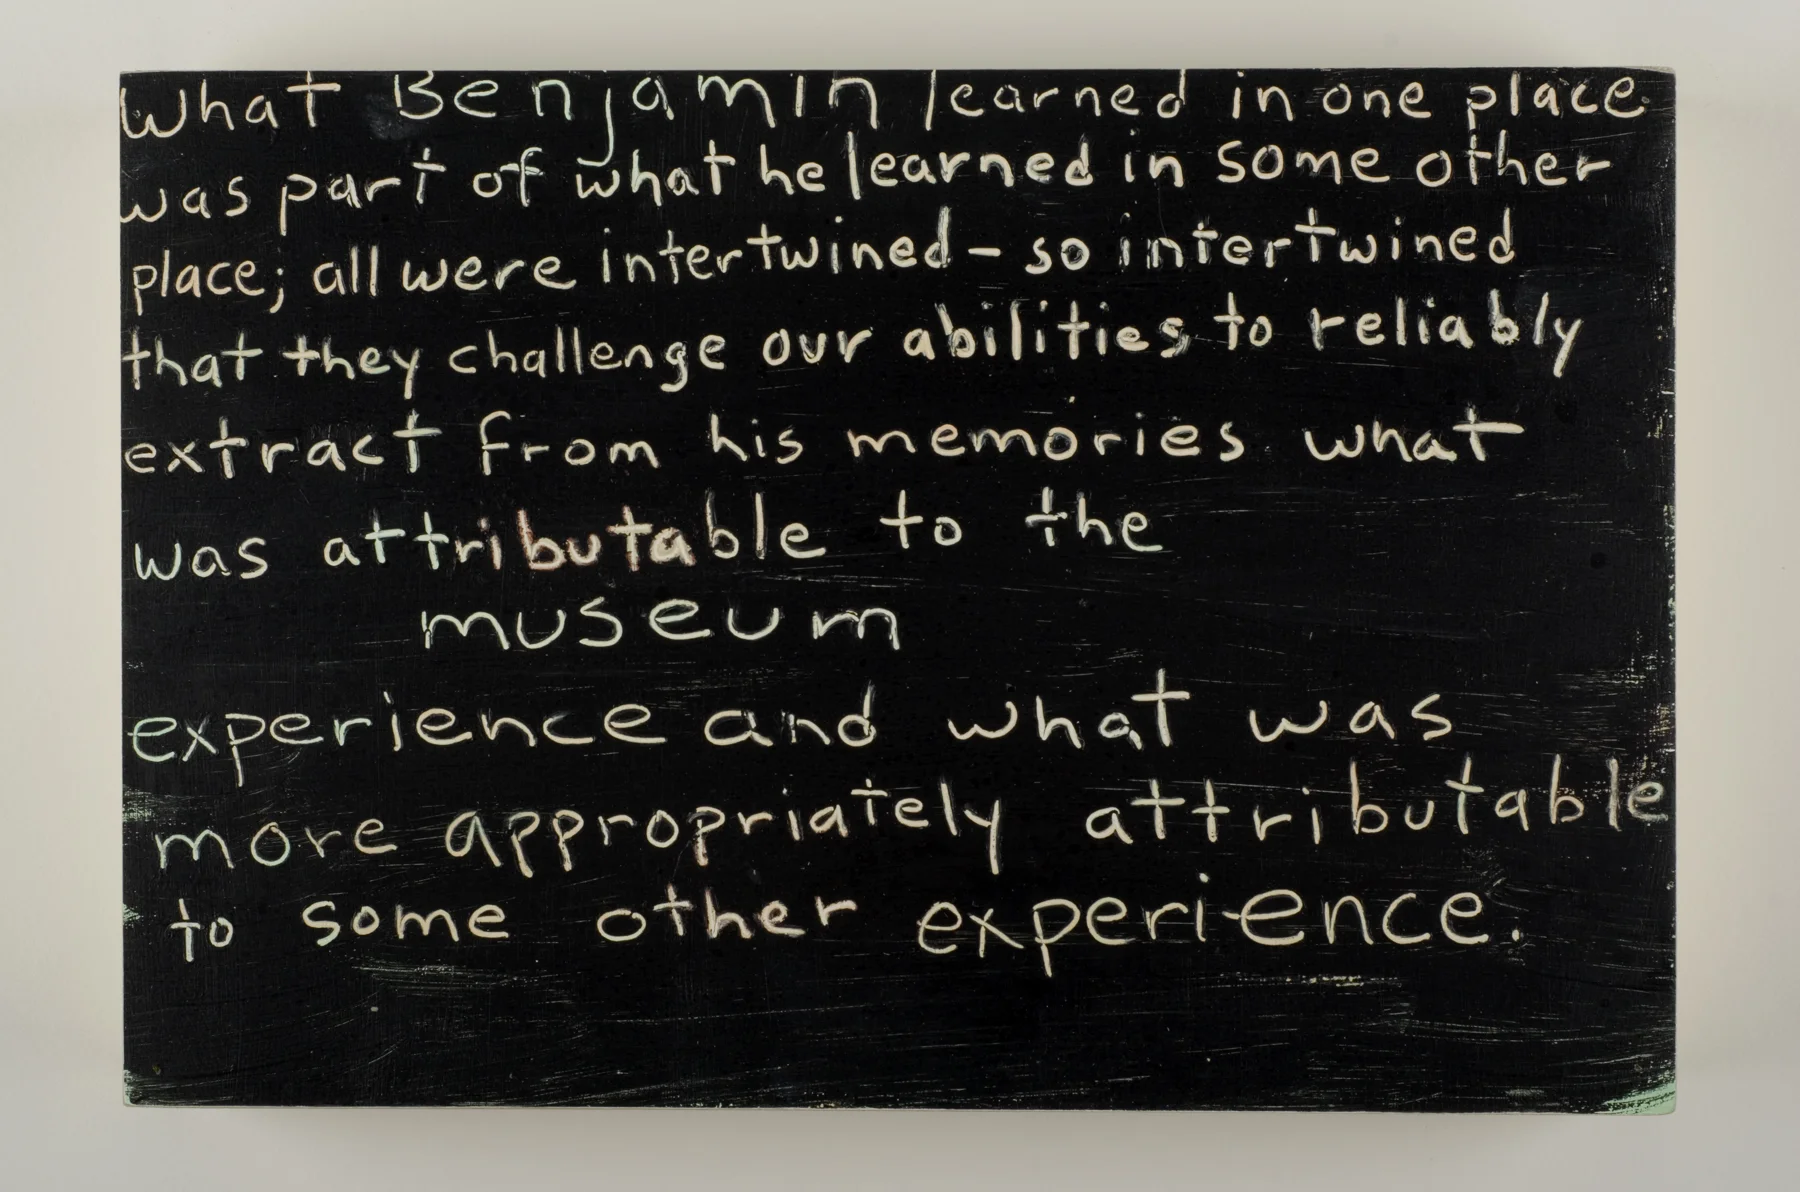 What Benjamin learned in one place
was part of what he learned in some other
place; all were intertwined – so intertwined
that they challenge our abilities to reliably
extract from his memories what
was attributable to the
museum
experience and what was
more appropriately attributable
to some other experience.